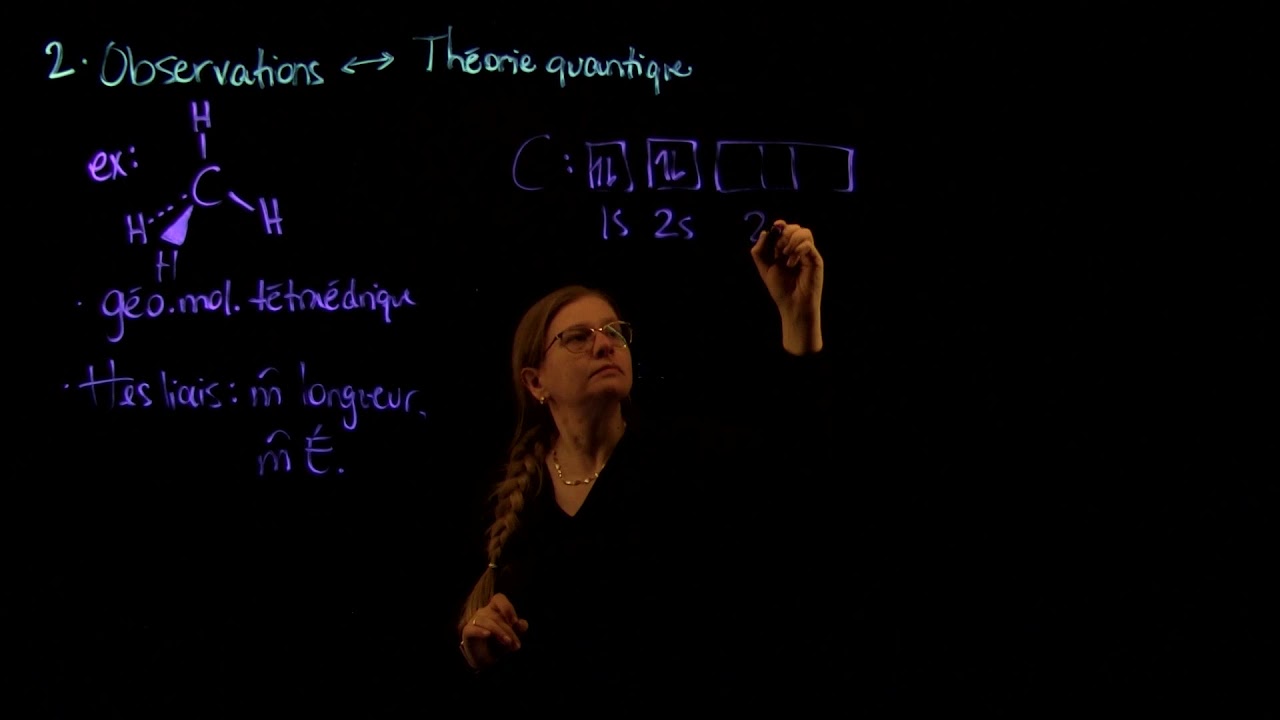 2. Observations ↔ Théorie quantique
ex:
H
C
H H
H
C: 1s 2s 2
· géo. mol. tétraédrique
· ttes liais: m̂ longueur,
m̂ É.